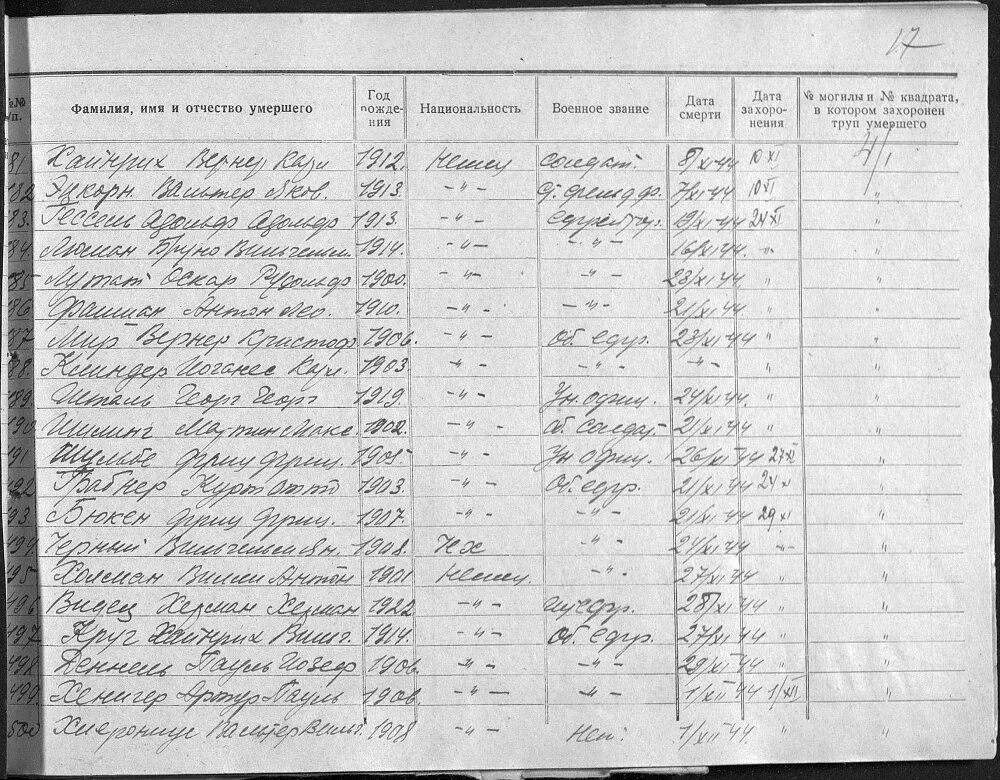 17
№№ п. Фамилия, имя и отчество умершего Год рождения Национальность Военное звание Дата смерти Дата захоронения № могилы и № квадрата, в котором захоронен труп умершего
81 Хайнрих Вернер Карл 1912. немец солдат. 8/XI-44 10 XI 4/1
182 Эцкорн Вальтер Яков. 1913. -"- 7/XI-44 10 XI "
83. Гессель Адольф Адольф 1913. -"- ефрейтор. 19/XI-44 24 XI "
84. Лосман Бруно Вильгельм. 1914. -"- -"- 16/XI-44. " "
85 Лутат Оскар Рудольф 1900. -"- -"- 23/XI-44 " "
86 Фрашман Антон Лео. 1910. -"- -"- 21/XI-44 " "
87 Мир Вернер Кристоф 1906. -"- об. ефр. 23/XI-44 " "
88. Клиндер Иоганес Карл. 1903. -"- -"- -"- " "
189. Шталь Георг Георг 1919. -"- Ун. офиц. 24/XI-44. " "
190 Шилинг Мартин Макс. 1902. -"- об. солдат. 21/XI-44. " "
191 Шульбе Фриц Фриц. 1905. -"- Ун офиц. 26/XI-44 27 XI "
192 Грабнер Курт Отто 1903. -"- Об. ефр. 21/XI-44 24 XI "
93. Бюкен Фриц Фриц. 1907. -"- -"- 21/XI-44 29 XI "
194 Черный Вильгельм Ян. 1908. Чех -"- 24/XI-44 -"- "
195 Холман Вилли Антон 1901 немец -"- 27/XI-44 " "
196 Видец Херман Херман 1922 -"- 28/XI-44 " "
497 Круг Хайнрих Вильг. 1914. -"- Об. ефр. 27/XI-44 " "
498 Деннель Пауль Иозеф 1906. -"- -"- 29/XI-44 " "
499. Хенигер Артур Пауль 1906. -"- -"- 1/XII-44 1/XII "
500 Хиеронимус Вальтер Вильг. 1908 -"- 1/XII-44. " "